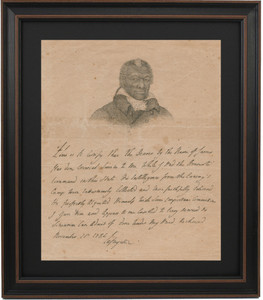 This is to Certify that the Bearer By the Name of James
Has done Essential Services to me While I Had the Honour to
Command in this State. His Intelligences from the Enemy's
Camp were Industriously Collected and More faithfully deliver'd
He perfectly Acquitted Himself with Some Important Commissions
I Gave Him and Appears to me Entitled to Every Reward his
Situation Can Admit of. Done Under my Hand, Richmond
November 21st 1784
Lafayette